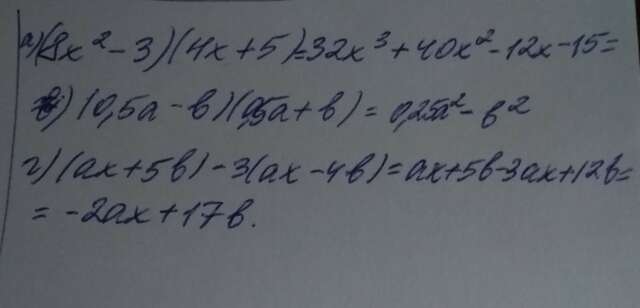 а) (8x² - 3)(4x + 5) = 32x³ + 40x² - 12x - 15 =
в) (0,5a - b)(0,5a + b) = 0,25a² - b²
г) (ax + 5b) - 3(ax - 4b) = ax + 5b - 3ax + 12b =
= -2ax + 17b.